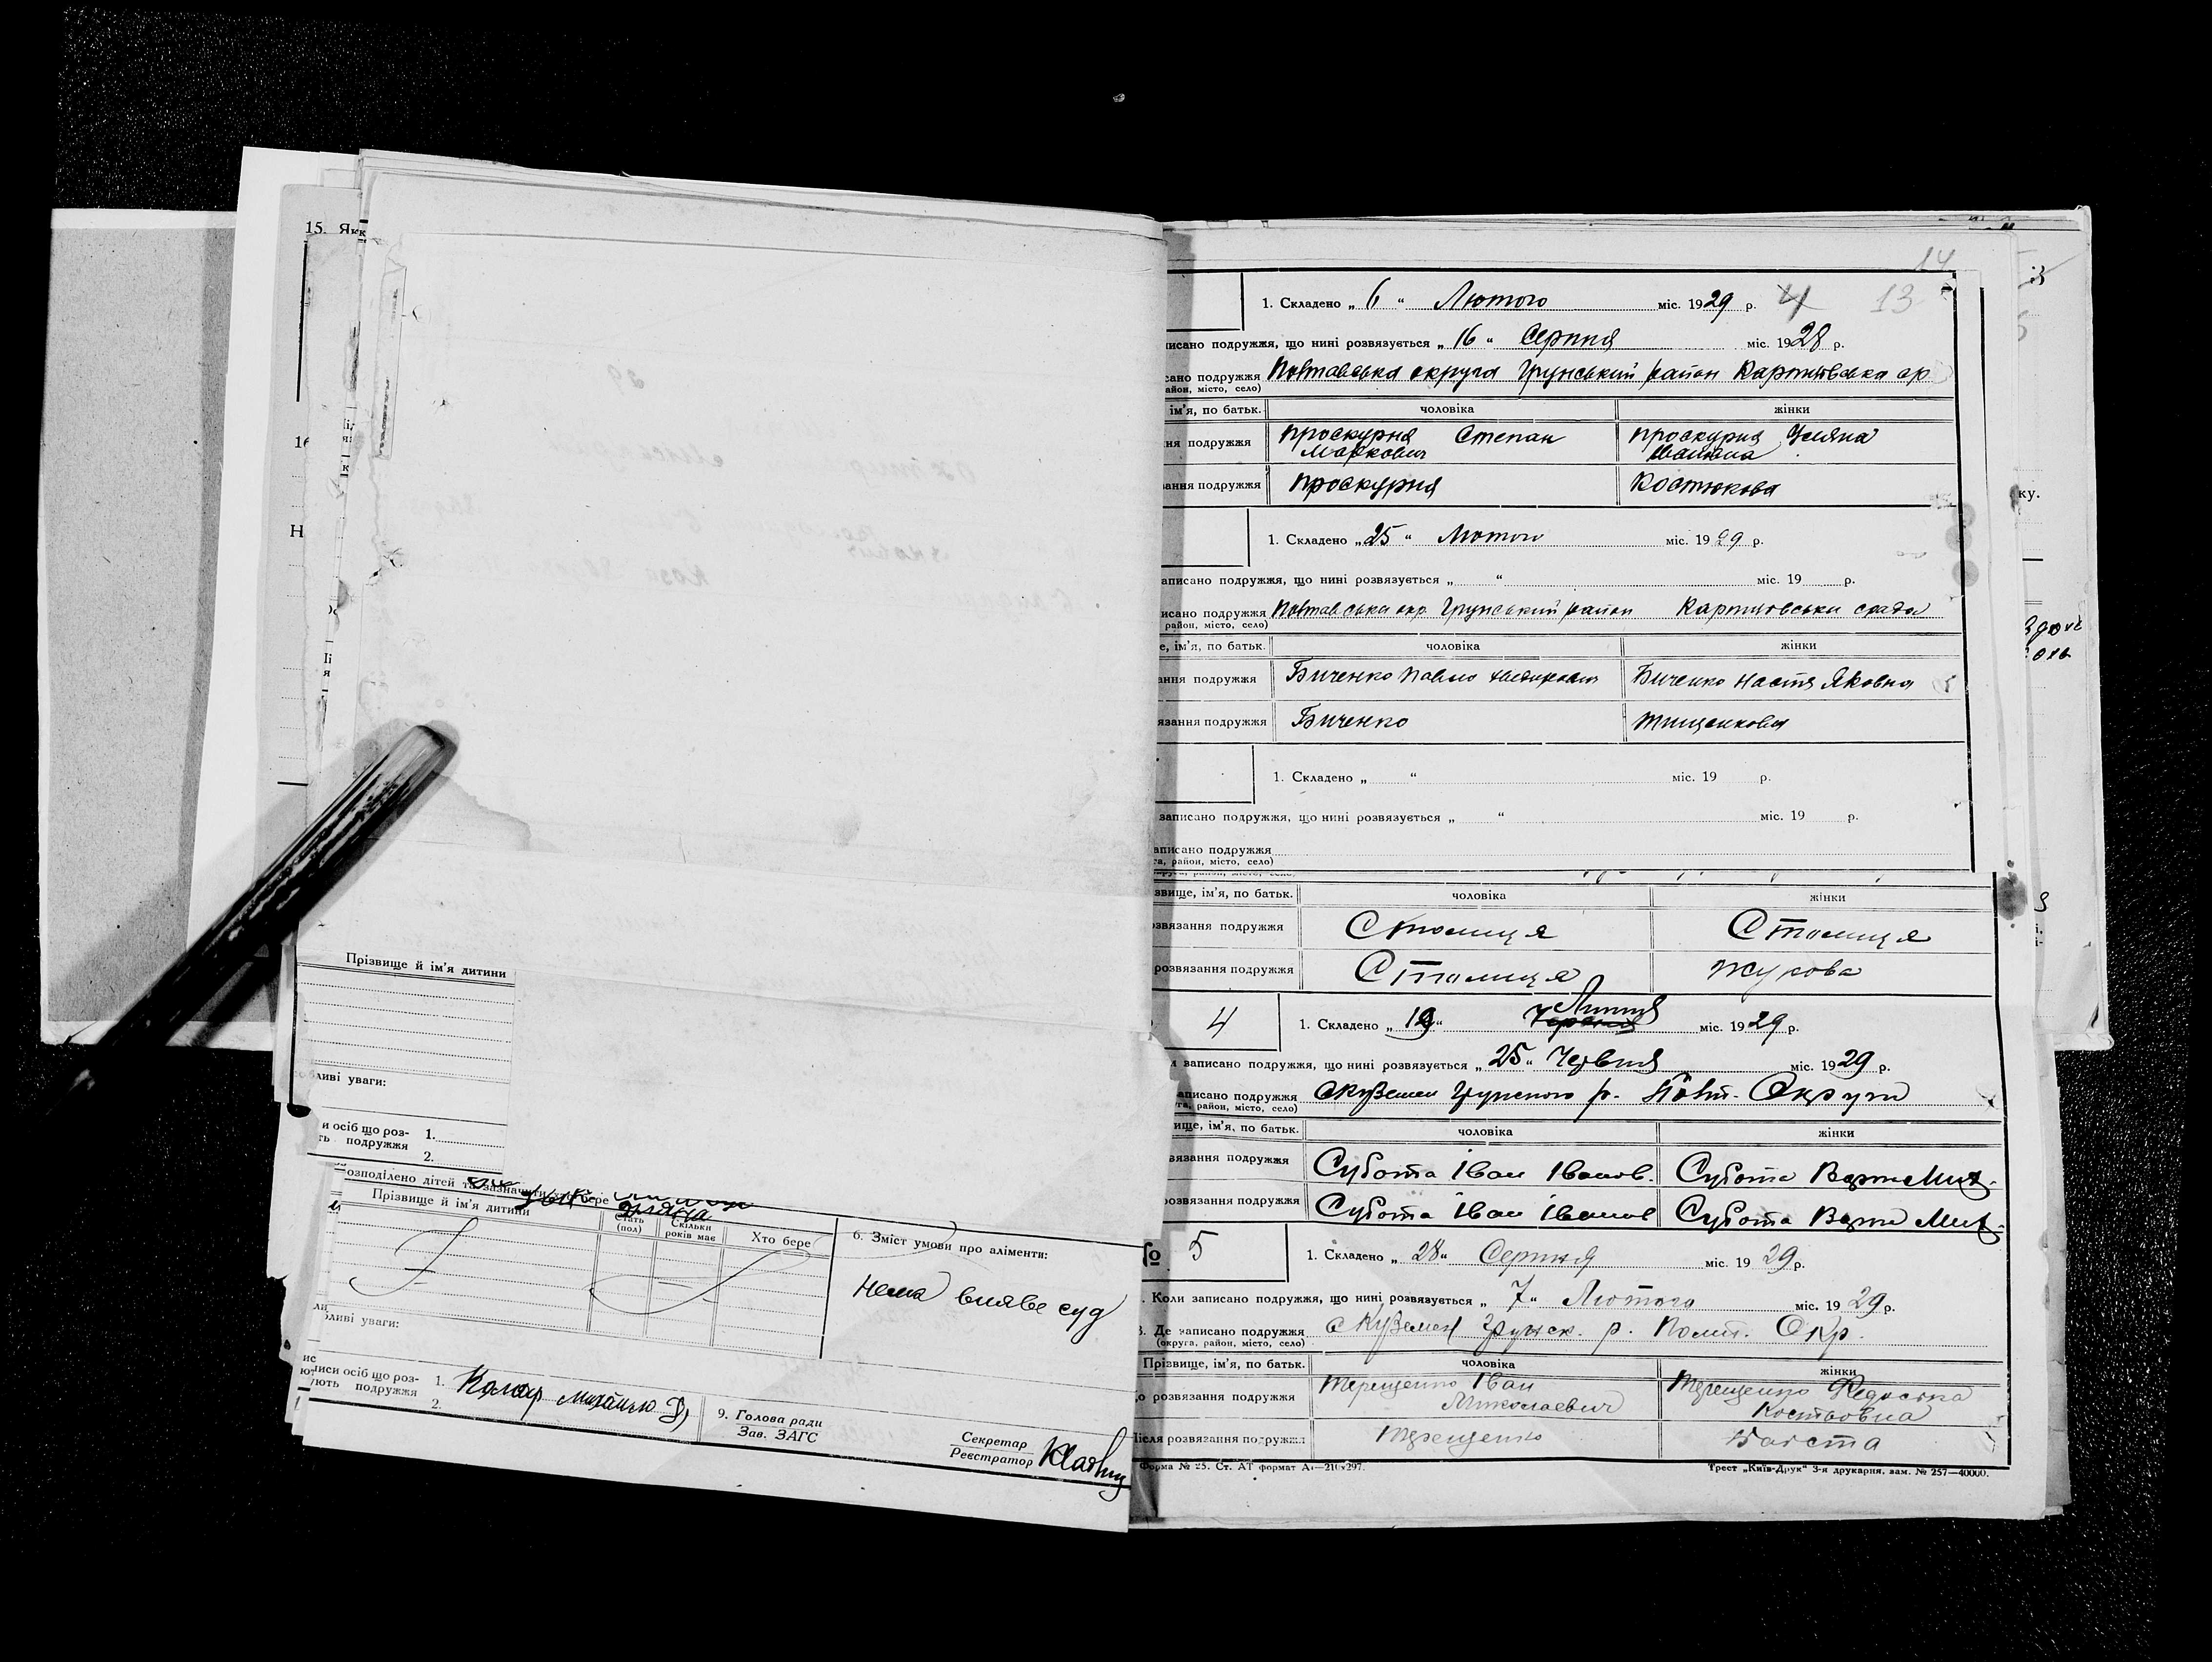 15. Як
16
Н
Прізвище й ім'я дитини
ливі уваги:
и осіб що роз-
ть подружжя
1.
2.
озподілено дітей та зазначити хто бере
Прізвище й ім'я дитини
Стать (пол)
Скільки років має
Хто бере
6. Зміст умови про аліменти:
нема вияве суд
ливі уваги:
писи осіб що роз-
ують подружжя
1.
2.
9. Голова ради
Зав. ЗАГС
Секретар
Реєстратор
14
1. Складено „ 6 “ Лютого міс. 1929 р. 4 13
писано подружжя, що нині розвязується „ 16 “ Серпня міс. 1928 р.
сано подружжя Полтавська округа Грунський район
айон, місто, село)
ім'я, по батьк. чоловіка жінки
ня подружжя Проскурня Степан Проскурня Уляна
Маркович Іванівна
ання подружжя Проскурня Костюкова
1. Складено „ 25 “ Лютого міс. 1929 р.
аписано подружжя, що нині розвязується „ “ міс. 19 р.
исано подружжя Полтавська окр. Грунський район
район, місто, село)
е, ім'я, по батьк. чоловіка жінки
ання подружжя Биченко Павло Биченко Настя Яковна
язання подружжя Биченко Тищенкова
1. Складено „ “ міс. 19 р.
записано подружжя, що нині розвязується „ “ міс. 19 р.
аписано подружжя
га, район, місто, село)
звище, ім'я, по батьк. чоловіка жінки
озвязання подружжя Столиця Столиця
розвязання подружжя Столиця Жукова
4 1. Складено „ 19 “ Липня міс. 1929 р.
и записано подружжя, що нині розвязується „ 25 “ Червня міс. 1929 р.
аписано подружжя с Куземен Грунского р. Полт. Округи
га, район, місто, село)
ище, ім'я, по батьк. чоловіка жінки
вязання подружжя Субота Іван Іванов. Субота Варк Мих.
розвязання подружжя Субота Іван Іванов Субота Варк Мих.
№ 5 1. Складено „ 28 “ Серпня міс. 1929 р.
. Коли записано подружжя, що нині розвязується „ 7 “ Лютого міс. 1929 р.
3. Де записано подружжя с Куземен Грунск. р. Полт. Окр.
(округа, район, місто, село)
Прізвище, ім'я, по батьк. чоловіка жінки
о розвязання подружжя Терещенко Іван Терещенко Федоська
Миколаевич Костьовна
Після розвязання подружжя Терещенко
Форма № 25. Ст. АТ формат А4—210×297. Трест „Київ-Друк“ 3-я друкарня, зам. № 257—40000.
ку.